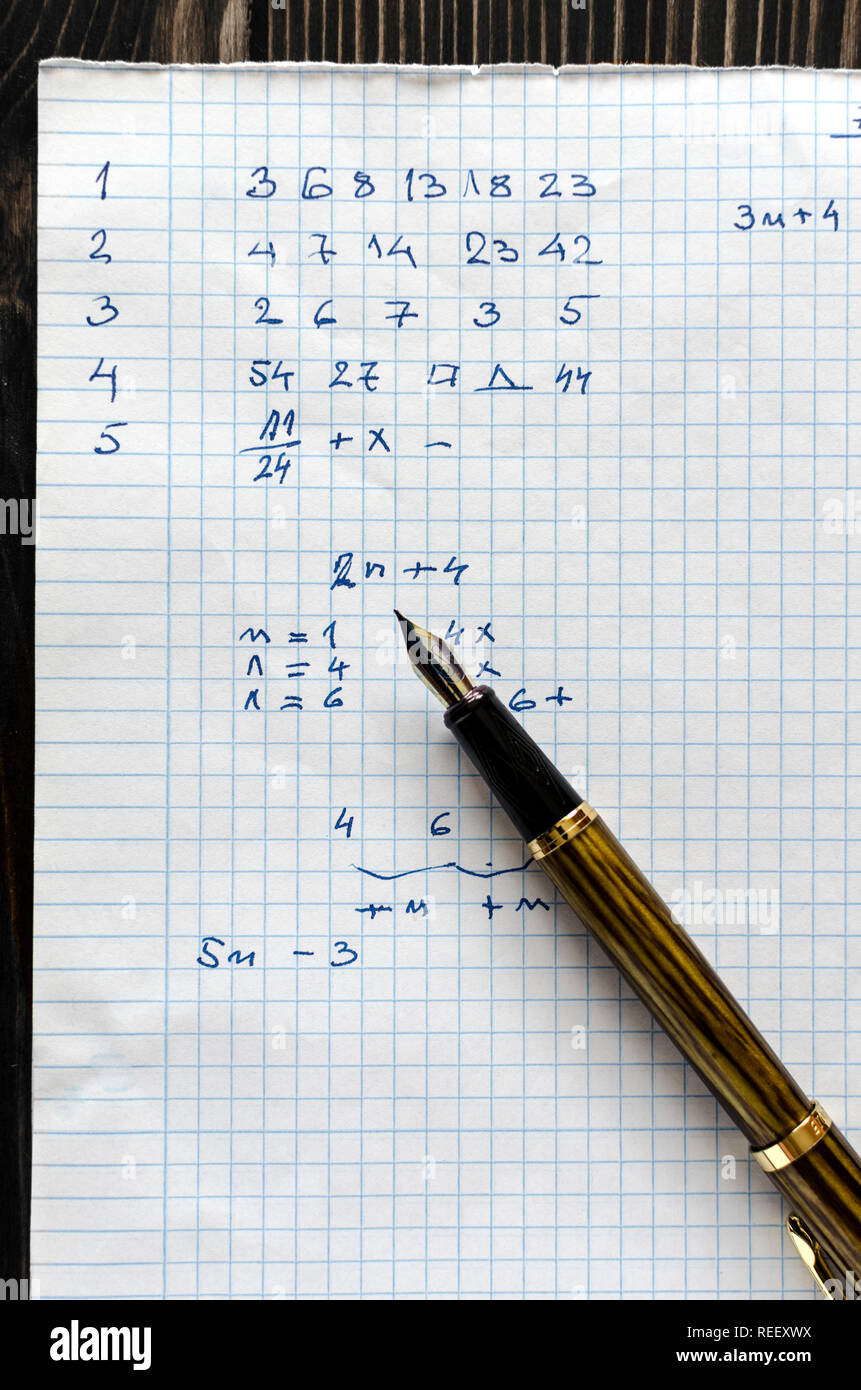 1 3 6 8 13 18 23
3n+4
2 4 7 14 23 42
3 2 6 7 3 5
4 54 27 44
5 11/24 + x –
2n + 4
n = 1 4x
n = 4 x
n = 6 6+
4 6
+ n + n
5n - 3
alamy
Image ID: REEXWX
www.alamy.com